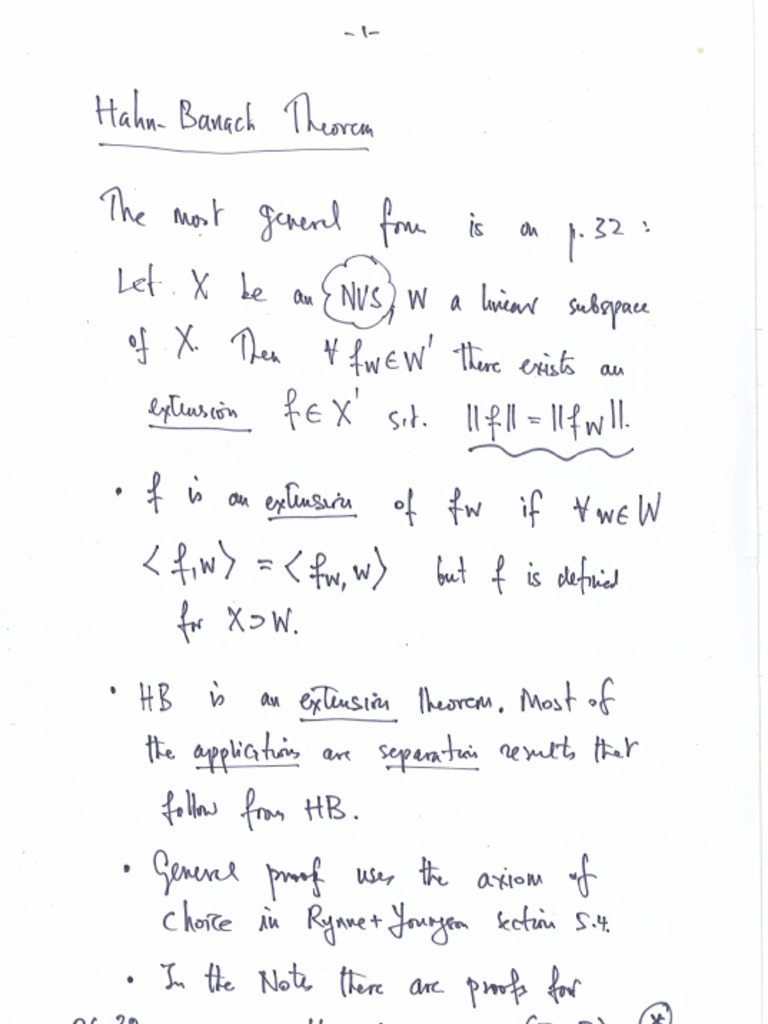 -1-
Hahn-Banach Theorem
The most general form is on p.32 :
Let X be an NVS, W a linear subspace
of X. Then ∀ f_W ∈ W' there exists an
extension f ∈ X' s.t. ||f|| = ||f_W||.
• f is an extension of f_W if ∀ w ∈ W
<f, w> = <f_W, w> but f is defined
for X ⊃ W.
• HB is an extension theorem. Most of
the applications are separation results that
follow from HB.
• General proof uses the axiom of
choice in Rynne + Youngson section 5.4.
• In the Notes there are proofs for